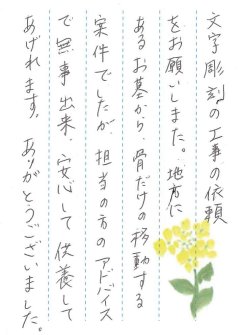 文字彫刻の工事の依頼
をお願いしました。地方に
あるお墓から、骨だけの移動する
案件でしたが、担当の方のアドバイス
で無事出来、安心して供養して
あげれます。ありがとうございました。